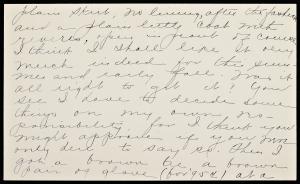 plain skirt, no lining, after the fashion
and a plain little coat with
revers, open in front of course
I think I shall like it very
much indeed for the sum-
mer and early fall. Was it
all right to get it? You
see I have to decide some
things on my own re-
sponsibility for I think you
might approve if you were
only here to say so. Then I
got a brown be a brown
pair of gloves (for 95¢) at a